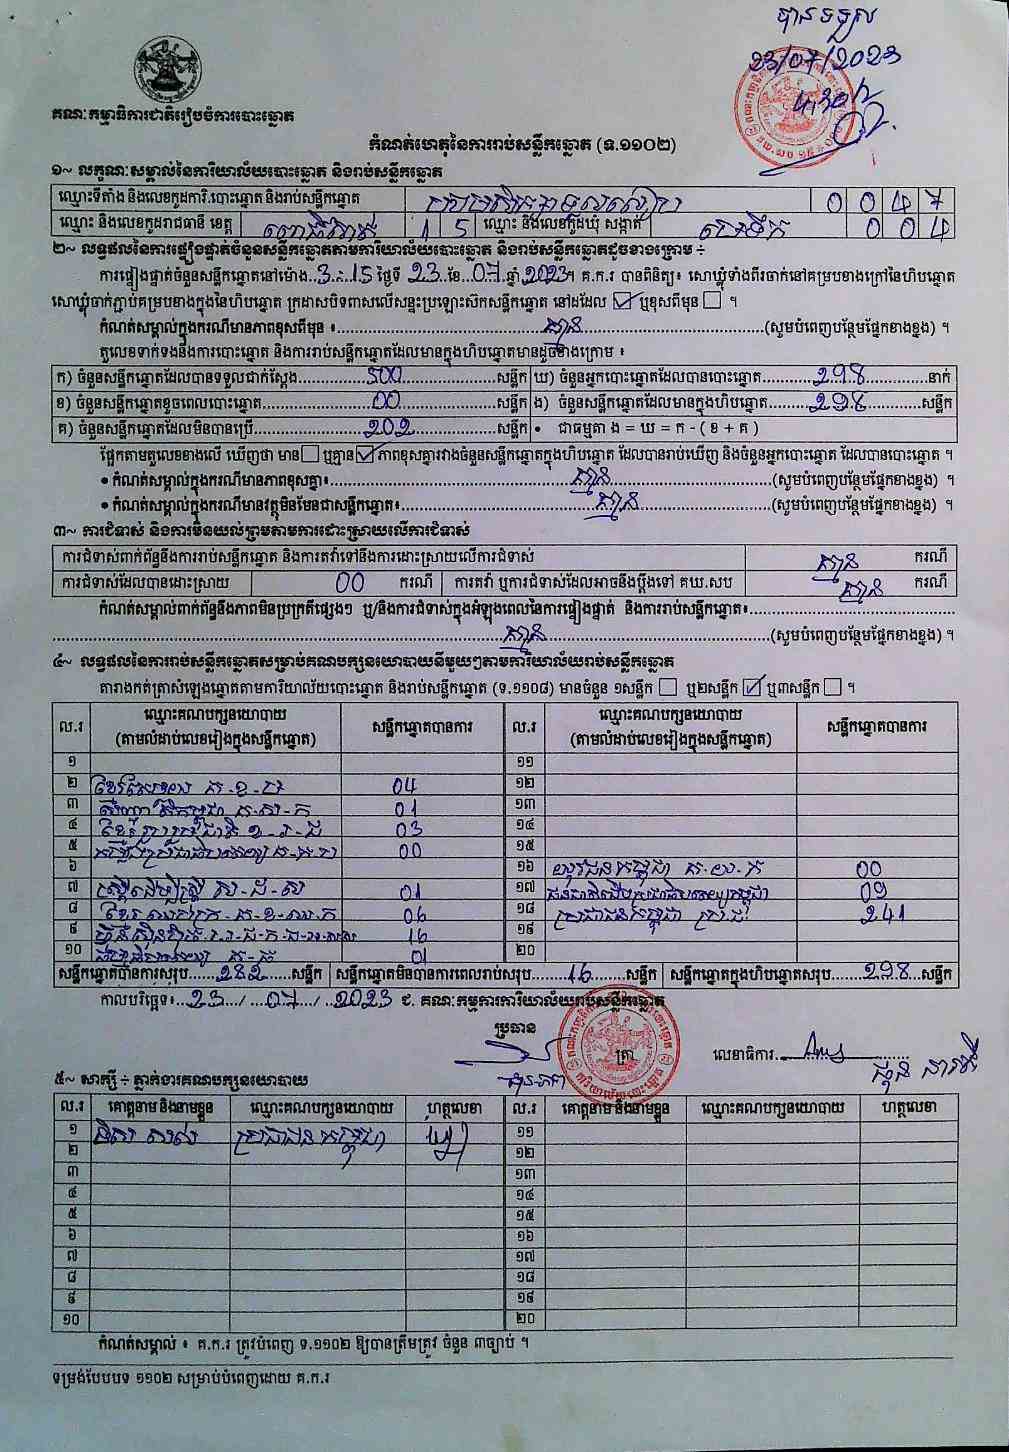 បានទទួល
23/07/2023
4:30
គណៈកម្មាធិការជាតិរៀបចំការបោះឆ្នោត
កំណត់ហេតុនៃការរាប់សន្លឹកឆ្នោត (ទ.១១០២)
១~ លក្ខណៈសម្គាល់នៃការិយាល័យបោះឆ្នោត និងរាប់សន្លឹកឆ្នោត
ឈ្មោះទីតាំង និងលេខកូដការិ.បោះឆ្នោត និងរាប់សន្លឹកឆ្នោត 0 0 4 7
ឈ្មោះ និងលេខកូដរាជធានី ខេត្ត ពោធិ៍សាត់ 1 5 ឈ្មោះ និងលេខកូដឃុំ សង្កាត់ 0 0 4
២~ លទ្ធផលនៃការផ្ទៀងផ្ទាត់ចំនួនសន្លឹកឆ្នោតតាមការិយាល័យបោះឆ្នោត និងរាប់សន្លឹកឆ្នោតដូចខាងក្រោម ÷
ការផ្ទៀងផ្ទាត់ចំនួនសន្លឹកឆ្នោតនៅម៉ោង 3:15 ថ្ងៃទី 23 ខែ 07 ឆ្នាំ 2023។ គ.ក.រ បានពិនិត្យ៖ សោឃ្លុំទាំងពីរចាក់នៅគម្របខាងក្រៅនៃហិបឆ្នោត
សោឃ្លុំចាក់ភ្ជាប់គម្របខាងក្នុងនៃហិបឆ្នោត ក្រដាសបិទពាសលើសន្ទះប្រឡោះស៊កសន្លឹកឆ្នោត នៅដដែល ☑ ឬខុសពីមុន ☐ ។
កំណត់សម្គាល់ក្នុងករណីមានភាពខុសពីមុន ៖ គ្មាន (សូមបំពេញបន្ថែមផ្នែកខាងខ្នង) ។
តួលេខទាក់ទងនឹងការបោះឆ្នោត និងការរាប់សន្លឹកឆ្នោតដែលមានក្នុងហិបឆ្នោតមានដូចខាងក្រោម ៖
ក) ចំនួនសន្លឹកឆ្នោតដែលបានទទួលជាក់ស្តែង 500 សន្លឹក ឃ) ចំនួនអ្នកបោះឆ្នោតដែលបានបោះឆ្នោត 298 នាក់
ខ) ចំនួនសន្លឹកឆ្នោតខូចពេលបោះឆ្នោត 00 សន្លឹក ង) ចំនួនសន្លឹកឆ្នោតដែលមានក្នុងហិបឆ្នោត 298 សន្លឹក
គ) ចំនួនសន្លឹកឆ្នោតដែលមិនបានប្រើ 202 សន្លឹក • ជាធម្មតា ង = ឃ = ក - ( ខ + គ )
ផ្អែកតាមតួលេខខាងលើ ឃើញថា មាន ☐ ឬគ្មាន ☑ ភាពខុសគ្នារវាងចំនួនសន្លឹកឆ្នោតក្នុងហិបឆ្នោត ដែលបានរាប់ឃើញ និងចំនួនអ្នកបោះឆ្នោត ដែលបានបោះឆ្នោត ។
• កំណត់សម្គាល់ក្នុងករណីមានភាពខុសគ្នា៖ គ្មាន (សូមបំពេញបន្ថែមផ្នែកខាងខ្នង) ។
• កំណត់សម្គាល់ក្នុងករណីមានវត្ថុមិនមែនជាសន្លឹកឆ្នោត៖ គ្មាន (សូមបំពេញបន្ថែមផ្នែកខាងខ្នង) ។
៣~ ការជំទាស់ និងការមិនយល់ព្រមតាមការដោះស្រាយលើការជំទាស់
ការជំទាស់ពាក់ព័ន្ធនឹងការរាប់សន្លឹកឆ្នោត និងការតវ៉ាទៅនឹងការដោះស្រាយលើការជំទាស់ គ្មាន ករណី
ការជំទាស់ដែលបានដោះស្រាយ 00 ករណី ការតវ៉ា ឬការជំទាស់ដែលអាចនឹងប្តឹងទៅ គឃ.សប គ្មាន ករណី
កំណត់សម្គាល់ពាក់ព័ន្ធនឹងភាពមិនប្រក្រតីផ្សេងៗ ឬ/និងការជំទាស់ក្នុងអំឡុងពេលនៃការផ្ទៀងផ្ទាត់ និងការរាប់សន្លឹកឆ្នោត៖
គ្មាន (សូមបំពេញបន្ថែមផ្នែកខាងខ្នង) ។
៤~ លទ្ធផលនៃការរាប់សន្លឹកឆ្នោតសម្រាប់គណបក្សនយោបាយនីមួយៗតាមការិយាល័យរាប់សន្លឹកឆ្នោត
តារាងកត់ត្រាសំឡេងឆ្នោតតាមការិយាល័យបោះឆ្នោត និងរាប់សន្លឹកឆ្នោត (ទ.១១០៨) មានចំនួន ១សន្លឹក ☐ ឬ២សន្លឹក ☑ ឬ៣សន្លឹក ☐ ។
ល.រ ឈ្មោះគណបក្សនយោបាយ (តាមលំដាប់លេខរៀងក្នុងសន្លឹកឆ្នោត) សន្លឹកឆ្នោតបានការ ល.រ ឈ្មោះគណបក្សនយោបាយ (តាមលំដាប់លេខរៀងក្នុងសន្លឹកឆ្នោត) សន្លឹកឆ្នោតបានការ
១ ១១
២ 04 ១២
៣ 01 ១៣
៤ 03 ១៤
៥ 00 ១៥
៦ ១៦ យុវជនកម្ពុជា គ.យ.ក 00
៧ ស្ត្រីដើម្បីស្ត្រី ស.ដ.ស 01 ១៧ ជនជាតិដើមប្រជាធិបតេយ្យកម្ពុជា 09
៨ 06 ១៨ ប្រជាជនកម្ពុជា 241
៩ ហ៊្វុនស៊ិនប៉ិច 16 ១៩
១០ 01 ២០
សន្លឹកឆ្នោតបានការសរុប 282 សន្លឹក សន្លឹកឆ្នោតមិនបានការពេលរាប់សរុប 16 សន្លឹក សន្លឹកឆ្នោតក្នុងហិបឆ្នោតសរុប 298 សន្លឹក
កាលបរិច្ឆេទ៖ 23 / 07 / 2023 ជ. គណៈកម្មការការិយាល័យរាប់សន្លឹកឆ្នោត
ប្រធាន
ត្រា លេខាធិការ
៥~ សាក្សី ÷ ភ្នាក់ងារគណបក្សនយោបាយ
ល.រ គោត្តនាម និងនាមខ្លួន ឈ្មោះគណបក្សនយោបាយ ហត្ថលេខា ល.រ គោត្តនាម និងនាមខ្លួន ឈ្មោះគណបក្សនយោបាយ ហត្ថលេខា
១ ប្រជាជនកម្ពុជា ១១
២ ១២
៣ ១៣
៤ ១៤
៥ ១៥
៦ ១៦
៧ ១៧
៨ ១៨
៩ ១៩
១០ ២០
កំណត់សម្គាល់ ៖ គ.ក.រ ត្រូវបំពេញ ទ.១១០២ ឱ្យបានត្រឹមត្រូវ ចំនួន ៣ច្បាប់ ។
ទម្រង់បែបបទ ១១០២ សម្រាប់បំពេញដោយ គ.ក.រ